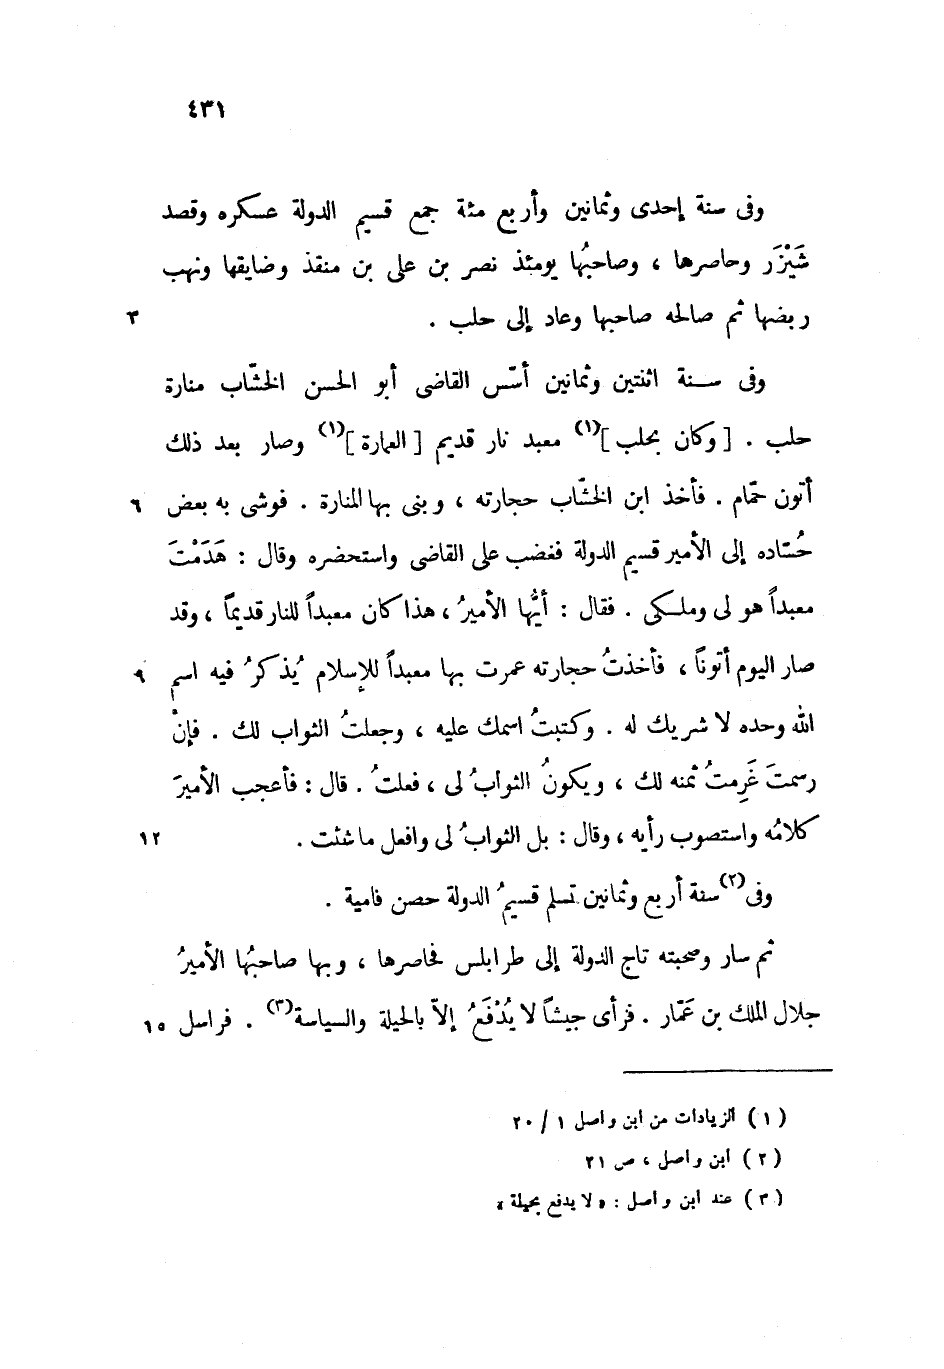 ٤٣١
وفى سنة إحدى وثمانين وأربع مئة جمع قسيم الدولة عسكره وقصد
شَيْزَر وحاصرها ، وصاحبُها يومئذ نصر بن على بن منقذ وضايقها ونهب
ربضها ثم صالحه صاحبها وعاد إلى حلب . ٣
وفى سنة اثنتين وثمانين أسّس القاضى أبو الحسن الخشّاب منارة
حلب . [ وكان بحلب ](١) معبد نار قديم [ العمارة ](١) وصار بعد ذلك
أتون حمّام . فأخذ ابن الخشّاب حجارته ، وبنى بها المنارة . فوشى به بعض ٦
حُسّاده إلى الأمير قسيم الدولة فغضب على القاضى واستحضره وقال : هَدَمْتَ
معبداً هو لى وملكى . فقال : أيُّها الأميرُ ، هذا كان معبداً للنار قديماً ، وقد
صار اليوم أتوناً ، فأخذتُ حجارته عمرت بها معبداً للإسلام يُذكرُ فيه اسم ٩
الله وحده لا شريك له . وكتبتُ اسمك عليه ، وجعلتُ الثواب لك . فإنْ
رسمتَ غَرِمتُ ثمنه لك ، ويكونُ الثوابُ لى ، فعلتُ . قال : فأعجب الأميرَ
كلامُه واستصوب رأيه ، وقال : بل الثوابُ لى وافعل ما شئت . ١٢
وفى(٢) سنة أربع وثمانين تسلم قسيمُ الدولة حصن فامية .
ثم سار وصحبته تاج الدولة إلى طرابلس فحاصرها ، وبها صاحبُها الأميرُ
جلال الملك بن عَمّار . فرأى جيشاً لا يُدْفَعُ إلاّ بالحيلة والسياسة(٣) . فراسل ١٥
( ١ ) الزيادات من ابن واصل ١ / ٢٠
( ٢ ) ابن واصل ، ص ٢١
( ٣ ) عند ابن واصل : « لا يدفع بحيلة »